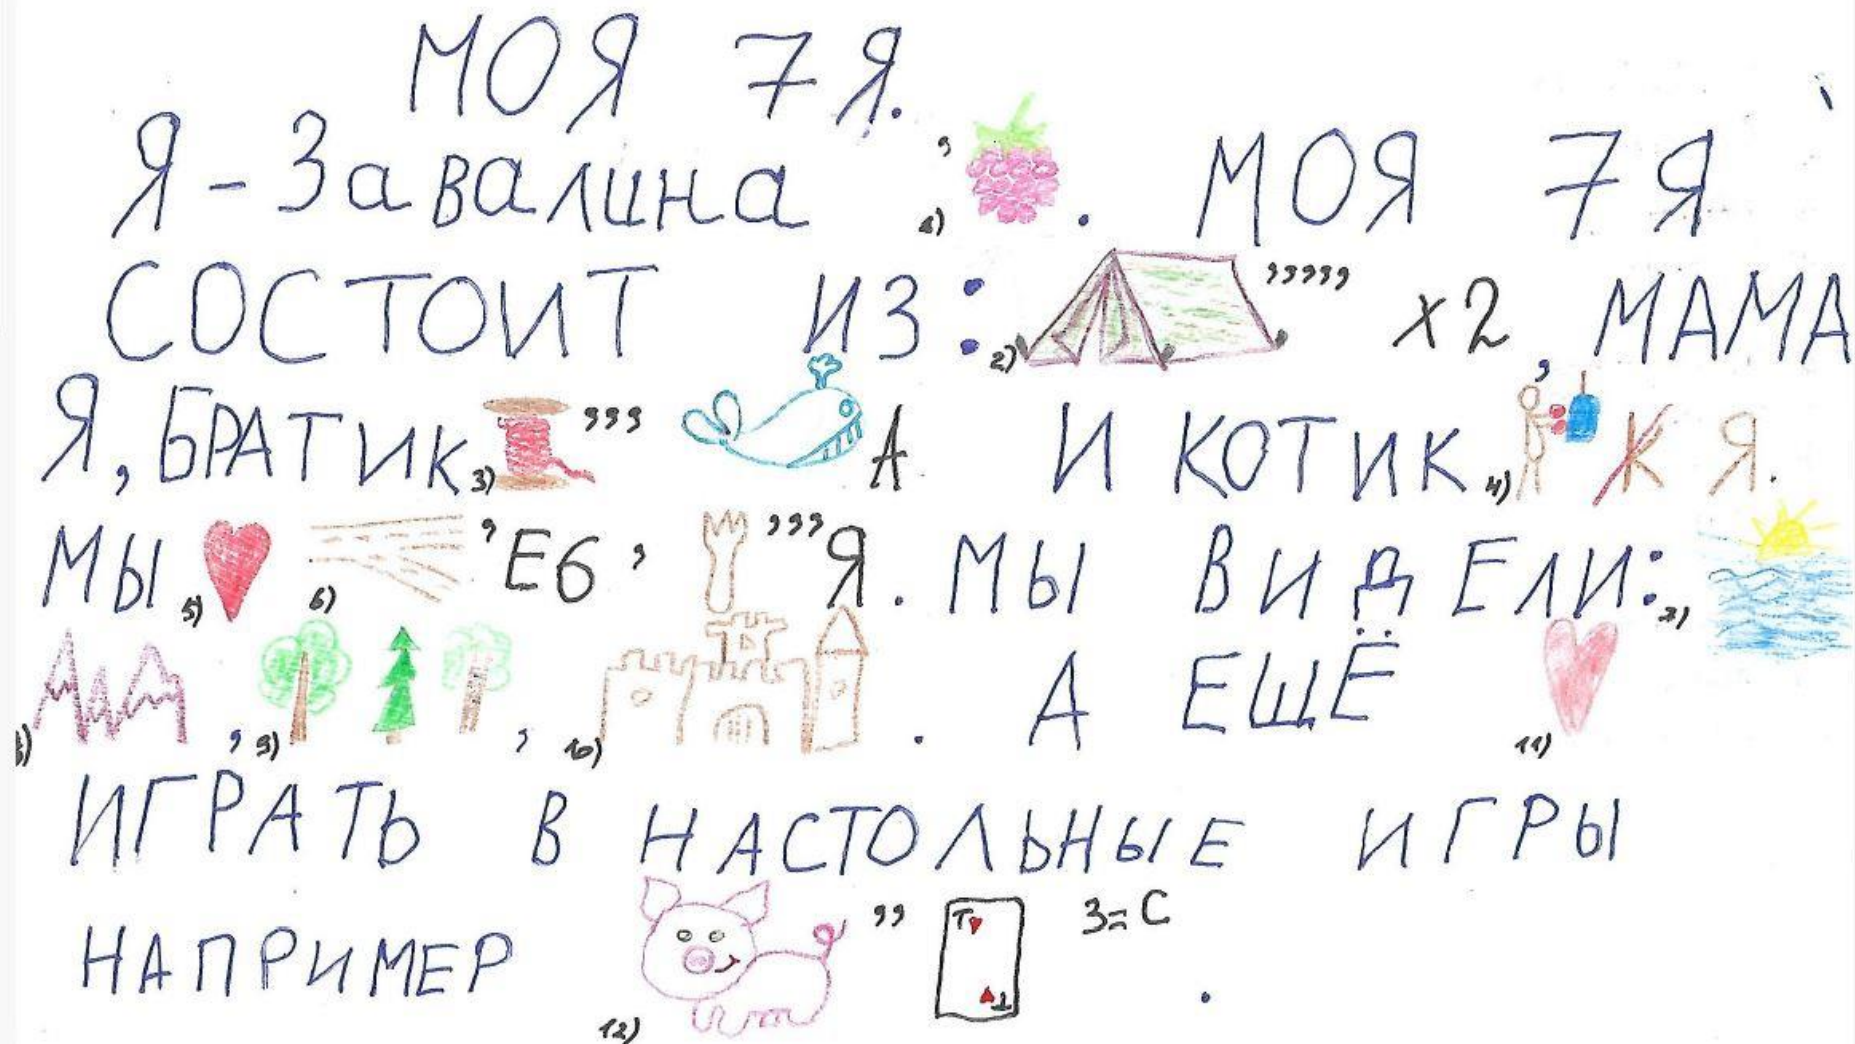 МОЯ 7Я.
Я - Завалина 1) , . МОЯ 7Я
СОСТОИТ ИЗ: 2) ,,,,, х2, МАМА
Я, БРАТИК, 3) ,,, А И КОТИК. 4) , К Я.
МЫ 5) 6) , Е6 , ,,, Я. МЫ ВИДЕЛИ: 7)
) , 9) , 10) . А ЕЩЁ 11)
ИГРАТЬ В НАСТОЛЬНЫЕ ИГРЫ
НАПРИМЕР 12) ,, Т Т 3=С .